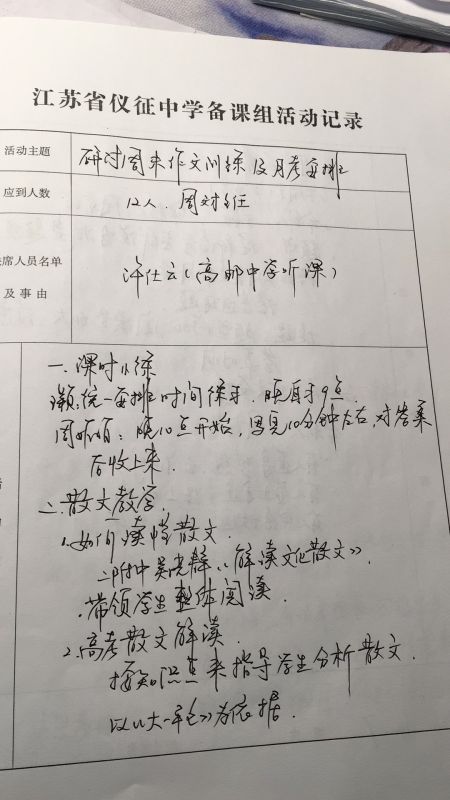 江苏省仪征中学备课组活动记录
活动主题 研讨周末作文训练及月考安排
应到人数 12人．周
席人员名单 许仕云（高邮中学听课）
及事由
一．课时训练
统一安排时间练习．晚自习9点．
周 ：晚10点开始，写完10分钟左右，对答案
后收上来．
二．散文教学．
1．如何读懂散文．
二附中吴 《解读文化散文》．
．带领学生整体阅读．
2．高考散文解读．
按知识点来指导学生分析散文．
以《大一轮》为依据．